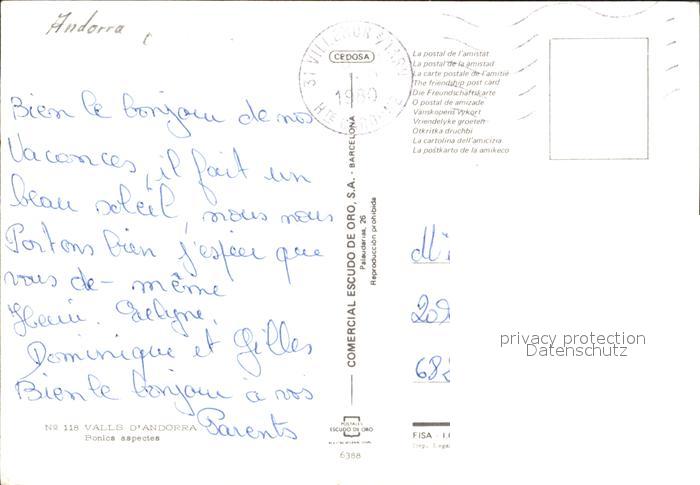 Andorra
Bien le bonjour de nos
Vacances, il fait un
beau soleil, nous nous
Portons bien j'espère que
vous de-même
Henri. Evelyne.
Dominique et Gilles
Bien le bonjour à vos
Parents
Nº 118 VALLS D'ANDORRA
Bonics aspectes
CEDOSA
COMERCIAL ESCUDO DE ORO, S.A. - BARCELONA
Palaudarias, 26
Reproducción prohibida
POSTALES
ESCUDO DE ORO
6388
31 VILLEMUR S/TARN
1980
Hte GARONNE
La postal de l'amistat
La postal de la amistad
La carte postale de l'amitié
The friendship post card
Die Freundschaftskarte
O postal de amizade
Vänskapens vykort
Vriendelyke groeteh
Otkritka druchbi
La cartolina dell'amicizia
La poŝtkarto de la amikeco
209
68
privacy protection
Datenschutz
FISA - I.
Dep. Legal